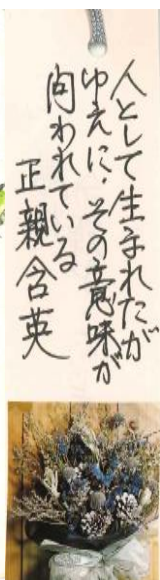 人として生まれたが
ゆえに、その意味が
問われている
正親含英